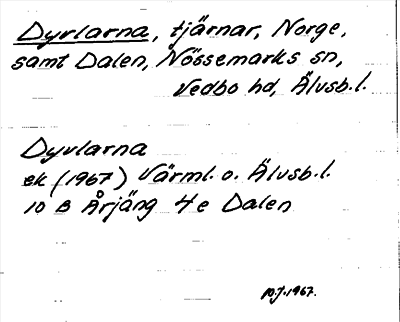 Dyrlarna, tjärnar, Norge,
samt Dalen, Nössemarks sn,
Vedbo hd, Älvsb.l.
Dyvlarna
ek (1967) Värml. o. Älvsb.l.
10 B Årjäng 4e Dalen
1967.